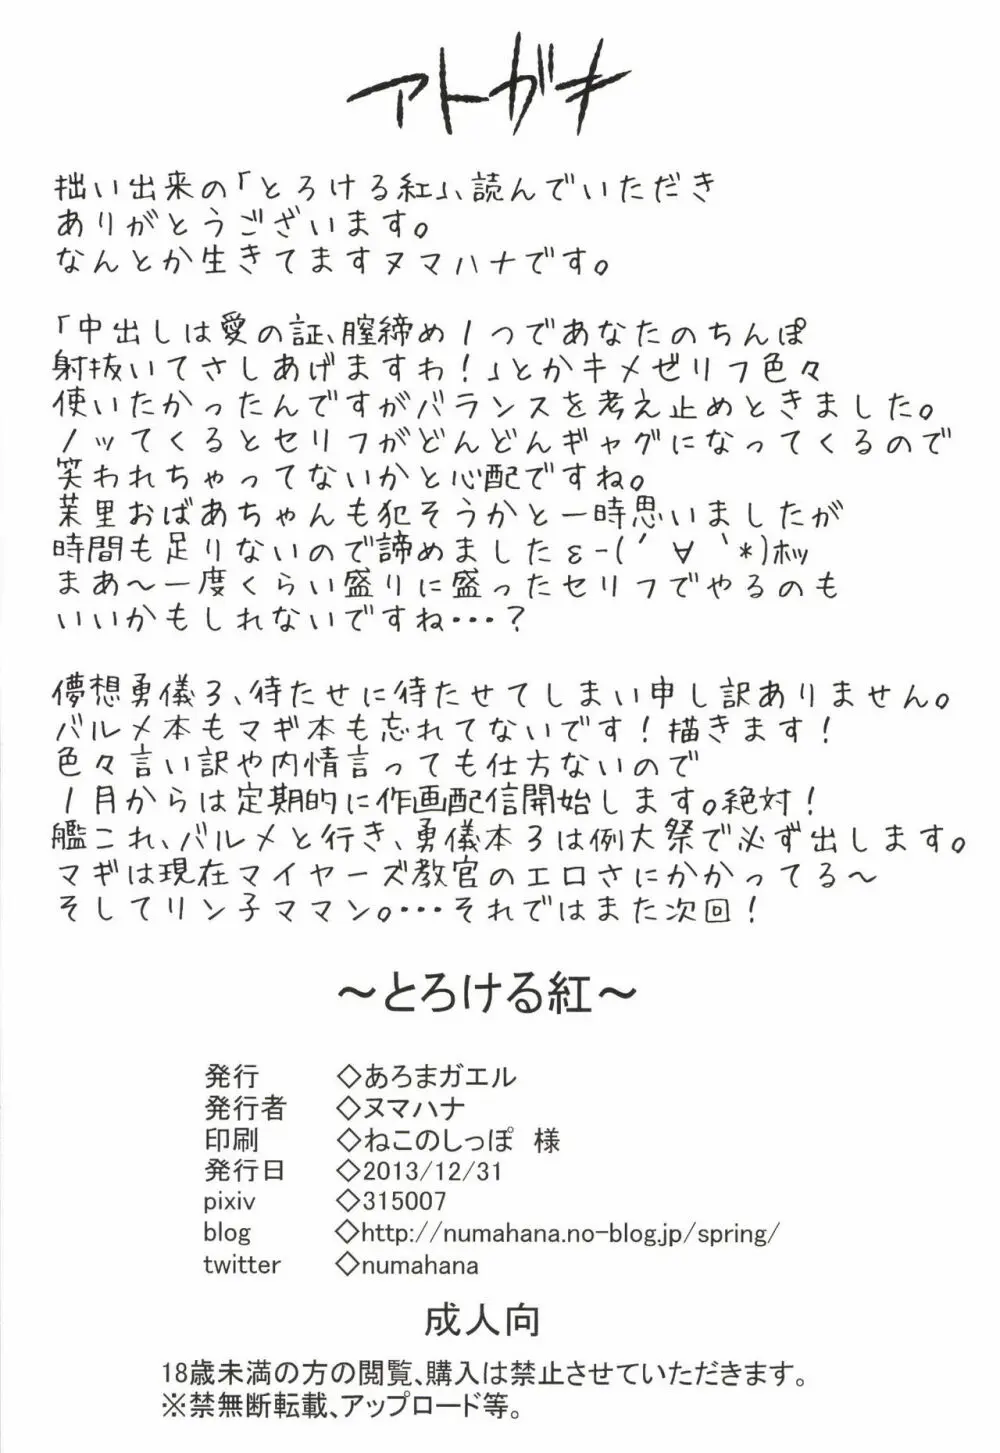 アトガキ
拙い出来の「とろける紅」、読んでいただき
ありがとうございます。
なんとか生きてますヌマハナです。
「中出しは愛の証、膣締め1つであなたのちんぽ
射抜いてさしあげますわ!」とかキメゼリフ色々
使いたかったんですがバランスを考え止めときました。
ノッてくるとセリフがどんどんギャグになってくるので
笑われちゃってないかと心配ですね。
茉里おばあちゃんも犯そうかと一時思いましたが
時間も足りないので諦めましたε-(´∀`*)ホッ
まあ～一度くらい盛りに盛ったセリフでやるのも
いいかもしれないですね・・・?
儚想勇儀3、待たせに待たせてしまい申し訳ありません。
バルメ本もマギ本も忘れてないです!描きます!
色々言い訳や内情言っても仕方ないので
1月からは定期的に作画配信開始します。絶対!
艦これ、バルメと行き、勇儀本3は例大祭で必ず出します。
マギは現在マイヤーズ教官のエロさにかかってる～
そしてリン子ママン。・・・それではまた次回!
～とろける紅～
発行 ◇あろまガエル
発行者 ◇ヌマハナ
印刷 ◇ねこのしっぽ 様
発行日 ◇2013/12/31
pixiv ◇315007
blog ◇http://numahana.no-blog.jp/spring/
twitter ◇numahana
成人向
18歳未満の方の閲覧、購入は禁止させていただきます。
※禁無断転載、アップロード等。